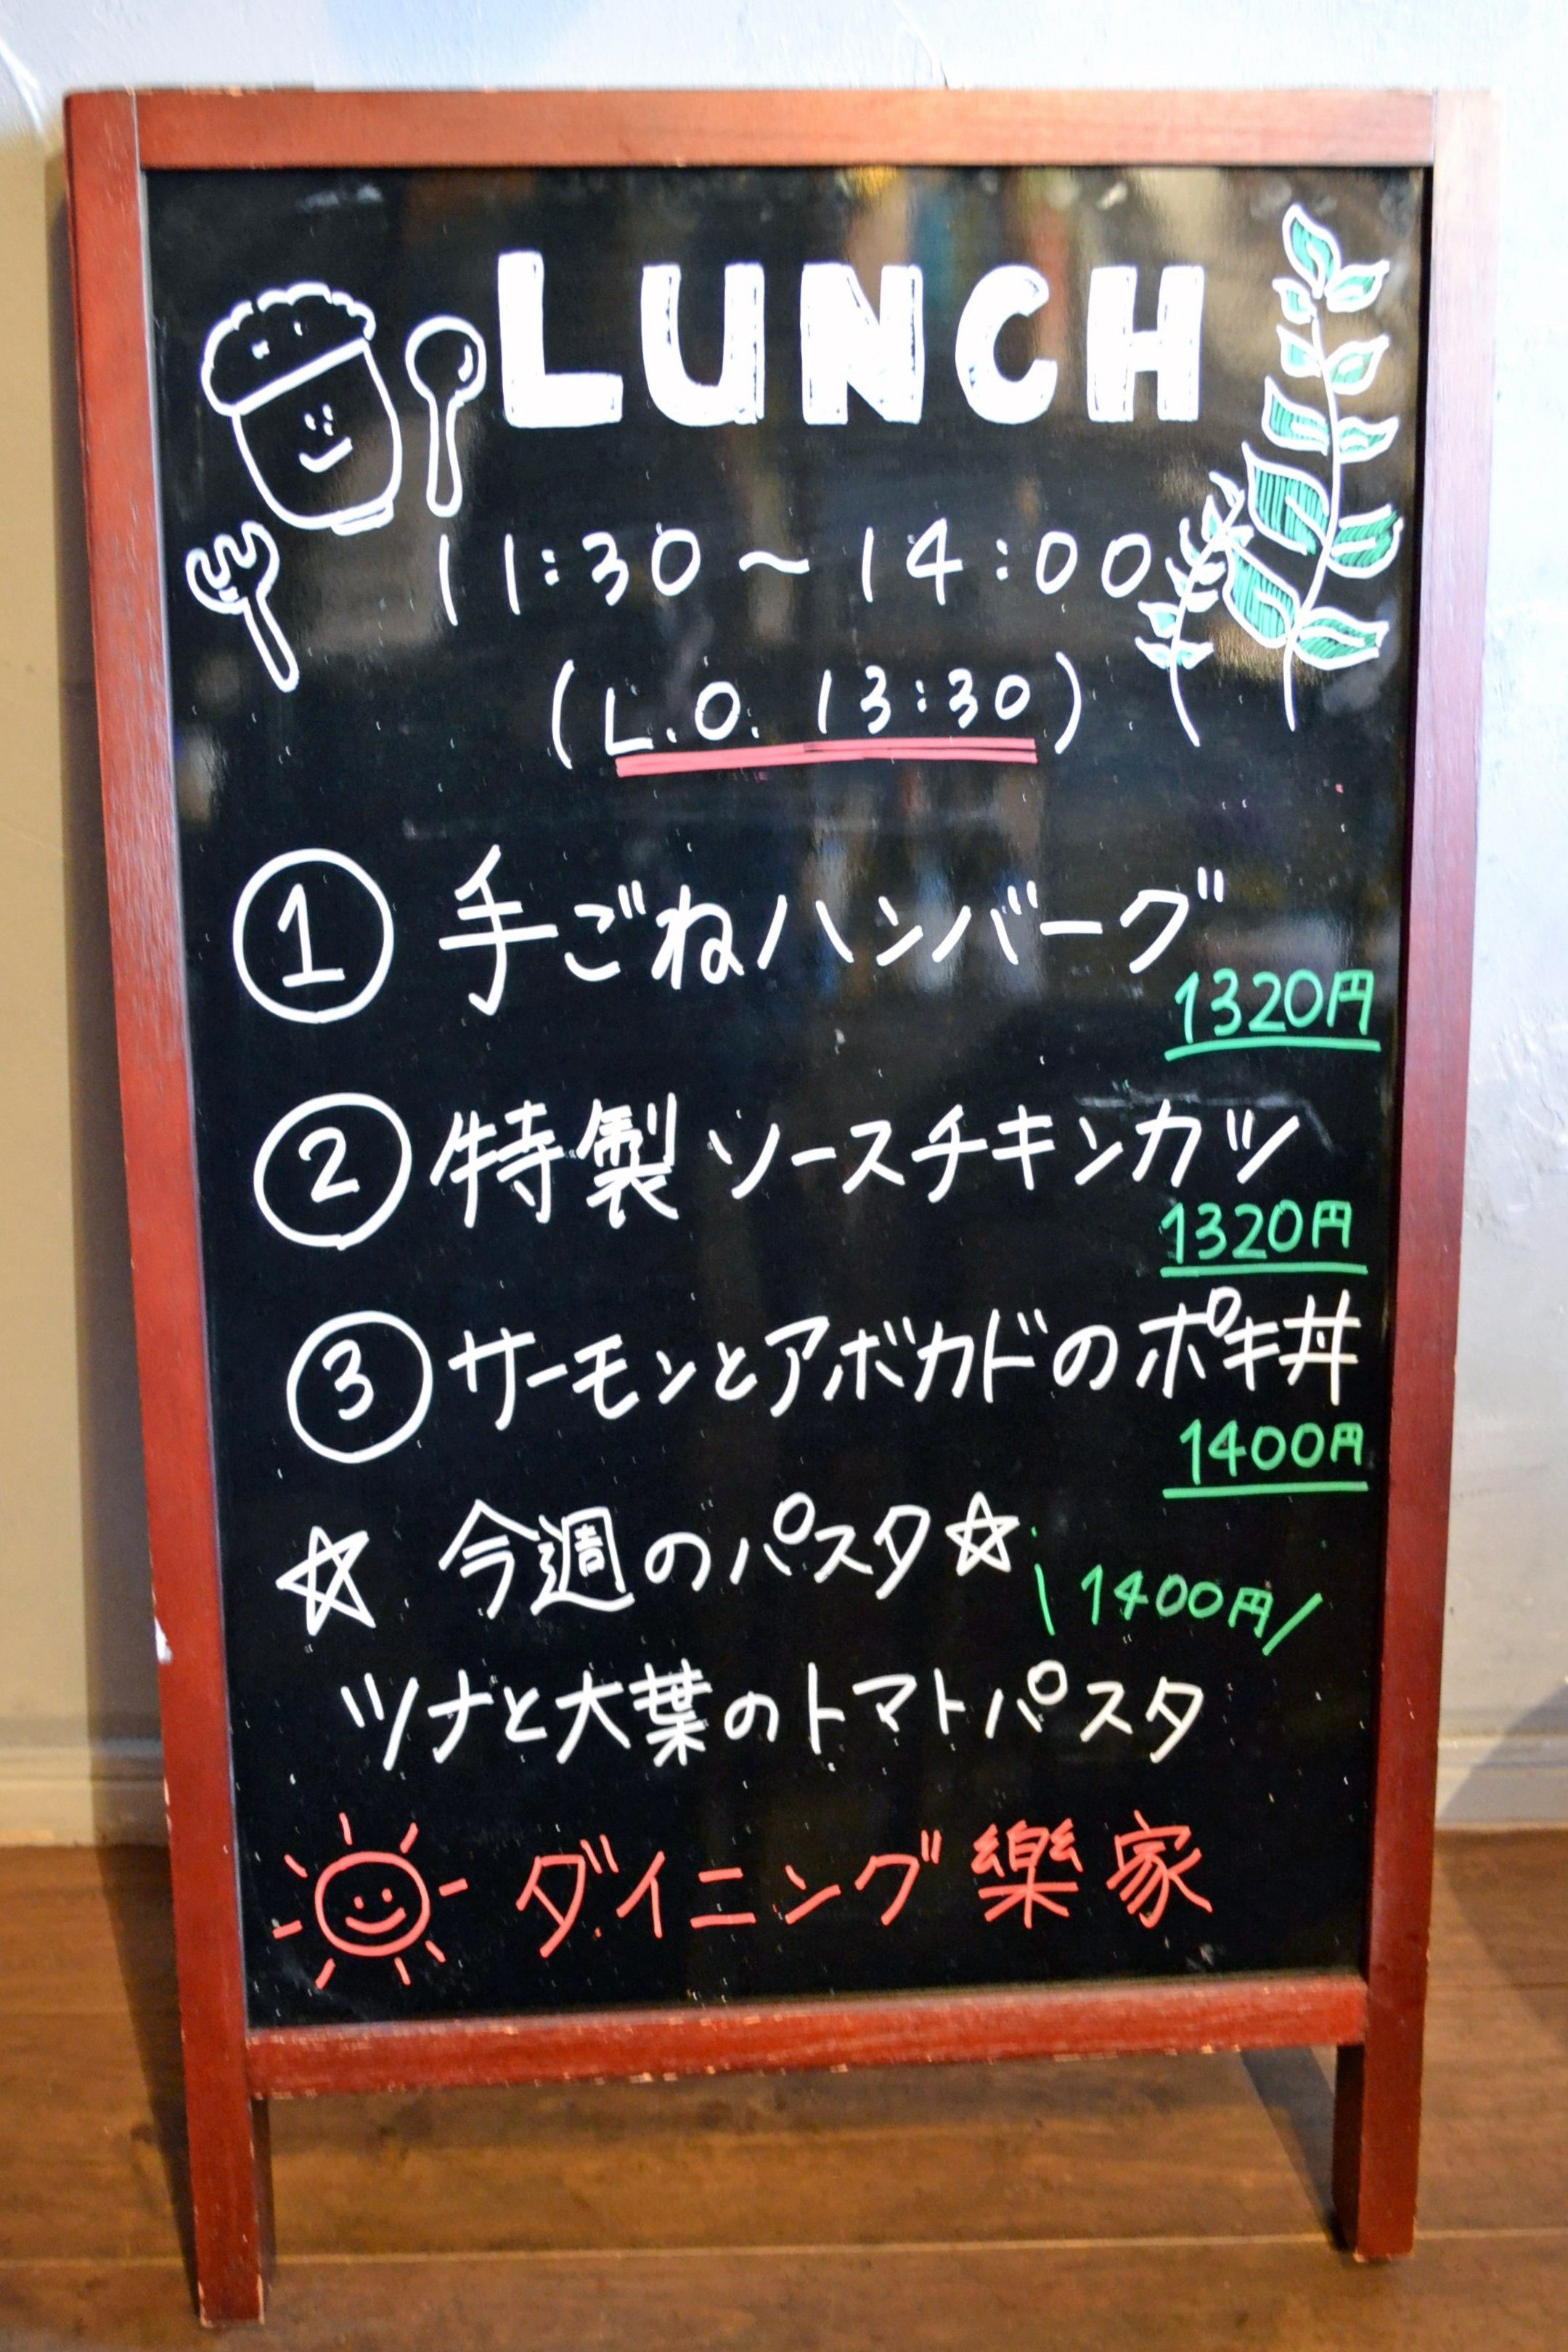 LUNCH
11:30～14:00
(L.O. 13:30)
① 手ごねハンバーグ
1320円
② 特製 ソースチキンカツ
1320円
③ サーモンとアボカドのポキ丼
1400円
☆ 今週のパスタ☆
\1400円/
ツナと大葉のトマトパスタ
ダイニング 樂家